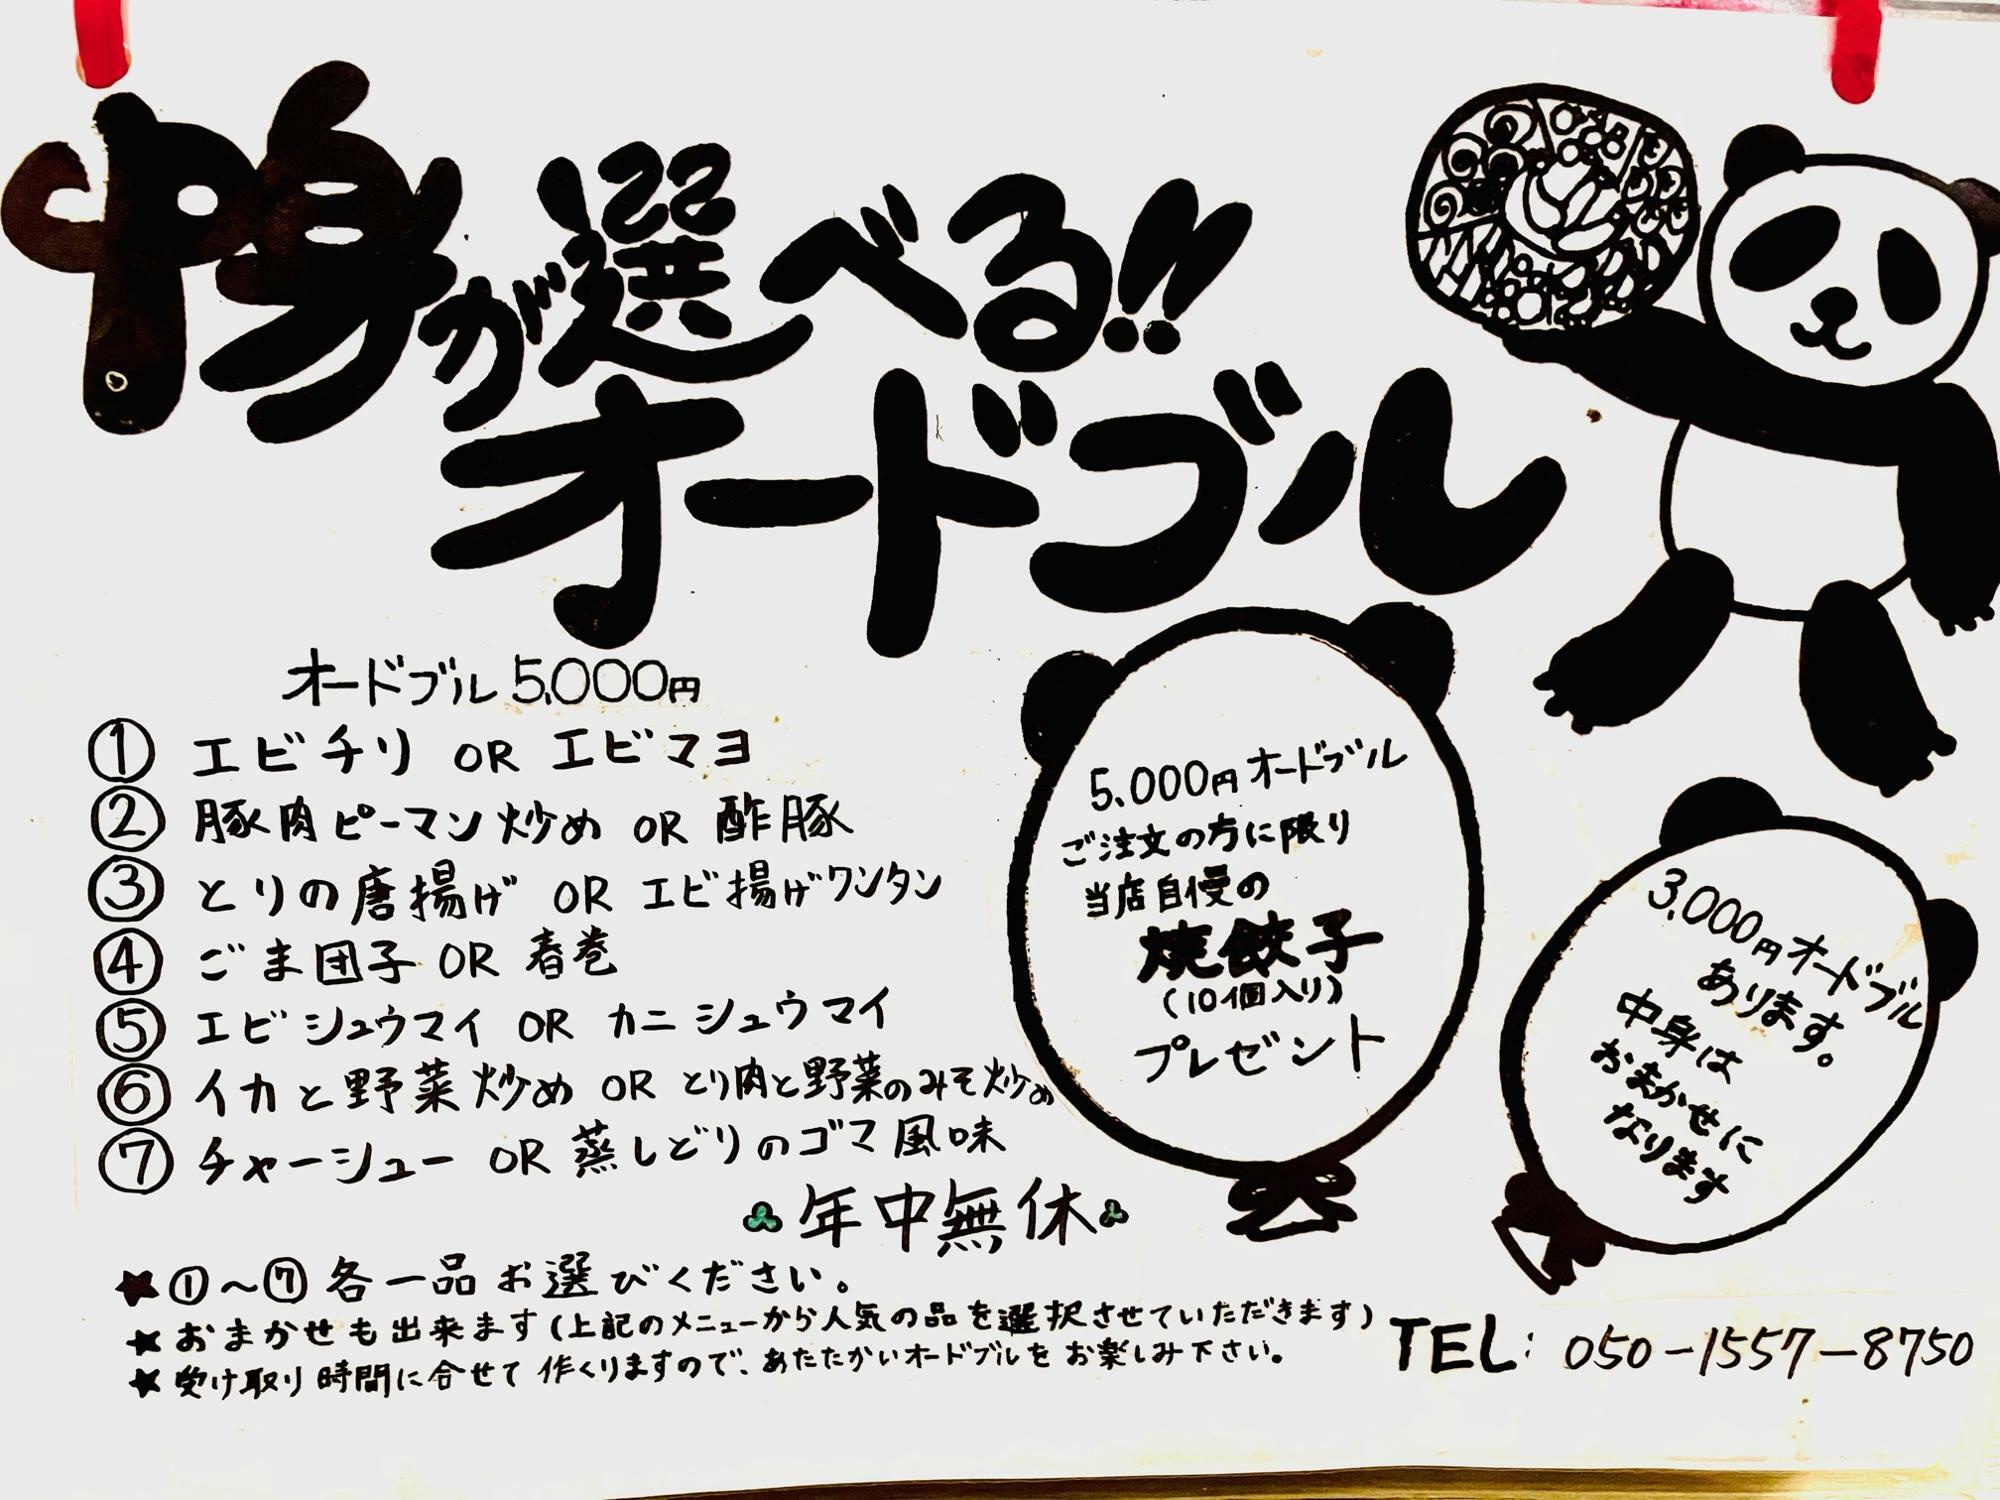 中身が選べる!!
オードブル
オードブル 5,000円
① エビチリ OR エビマヨ
② 豚肉ピーマン炒め OR 酢豚
③ とりの唐揚げ OR エビ揚げワンタン
④ ごま団子 OR 春巻
⑤ エビシュウマイ OR カニシュウマイ
⑥ イカと野菜炒め OR とり肉と野菜のみそ炒め
⑦ チャーシュー OR 蒸しどりのゴマ風味
年中無休
★①~⑦各一品お選びください。
★おまかせも出来ます(上記のメニューから人気の品を選択させていただきます)
★受け取り時間に合せて作くりますので、あたたかいオードブルをお楽しみ下さい。
5,000円オードブル
ご注文の方に限り
当店自慢の
焼餃子
(10個入り)
プレゼント
3,000円オードブル
あります。
中身は
おまかせに
なります
TEL: 050-1557-8750